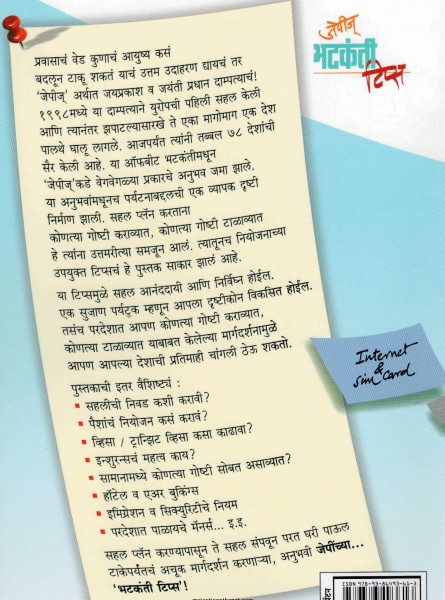 प्रवासाचं वेड कुणाचं आयुष्य कसं
बदलून टाकू शकतं याचं उत्तम उदाहरण द्यायचं तर
'जेपीज्' अर्थात जयप्रकाश व जयंती प्रधान दाम्पत्याचं!
१९९८मध्ये या दाम्पत्याने युरोपची पहिली सहल केली
आणि त्यानंतर झपाटल्यासारखे ते एका मागोमाग एक देश
पालथे घालू लागले. आजपर्यंत त्यांनी तब्बल ७८ देशांची
सैर केली आहे. या ऑफबीट भटकंतीमधून
'जेपीज्'कडे वेगवेगळ्या प्रकारचे अनुभव जमा झाले.
या अनुभवांमधूनच पर्यटनाबद्दलची एक व्यापक दृष्टी
निर्माण झाली. सहल प्लॅन करताना
कोणत्या गोष्टी कराव्यात, कोणत्या गोष्टी टाळाव्यात
हे त्यांना उत्तमरीत्या समजून आलं. त्यातूनच नियोजनाच्या
उपयुक्त टिप्सचं हे पुस्तक साकार झालं आहे.
या टिप्समुळे सहल आनंददायी आणि निर्विघ्न होईल.
एक सुजाण पर्यटक म्हणून आपला दृष्टीकोन विकसित होईल.
तसंच परदेशात आपण कोणत्या गोष्टी कराव्यात,
कोणत्या टाळाव्यात याबाबत केलेल्या मार्गदर्शनामुळे
आपण आपल्या देशाची प्रतिमाही चांगली ठेऊ शकतो.
पुस्तकाची इतर वैशिष्ट्यं :
▪ सहलीची निवड कशी करावी?
▪ पैशांचं नियोजन कसं करावं?
▪ व्हिसा / ट्रान्झिट व्हिसा कसा काढावा?
▪ इन्शुरन्सचं महत्व काय?
▪ सामानामध्ये कोणत्या गोष्टी सोबत असाव्यात?
▪ हॉटेल व एअर बुकिंग्स
▪ इमिग्रेशन व सिक्युरिटीचे नियम
▪ परदेशात पाळायचे मॅनर्स... इ.इ.
सहल प्लॅन करण्यापासून ते सहल संपवून परत घरी पाऊल
टाकेपर्यंतचं अचूक मार्गदर्शन करणाऱ्या, अनुभवी जेपींच्या...
'भटकंती टिप्स'!
जेपीज्
भटकंती
टिप्स
Internet
&
Sim Card
ISBN 978-93-86493-66-3